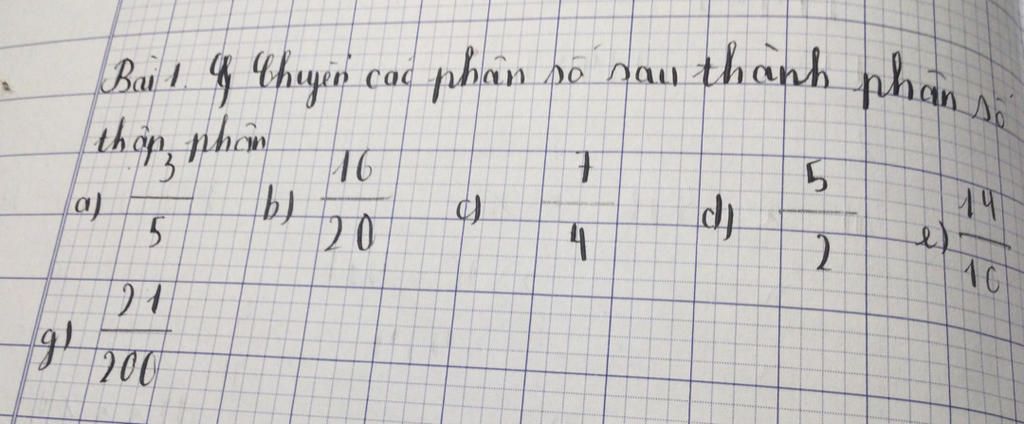 Bài 1. Chuyển các phân số sau thành phân số
thập phân
a) 3/5 b) 16/20 c) 7/4 d) 5/2 e) 14/16
g) 21/200